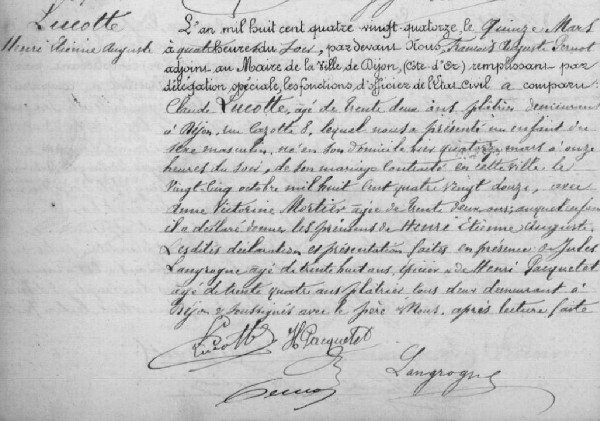 Lucotte
Henri Etienne Auguste
L'an mil huit cent quatre vingt-quatorze, le Quinze Mars
à quatre heures du soir, par devant Nous, François Auguste
adjoint au Maire de la Ville de Dijon, (Côte-d'Or) remplissant par
délégation spéciale, les fonctions d'officier de l'Etat Civil a comparu:
Claude Lucotte, âgé de trente deux ans, plâtrier demeurant
à Dijon, rue Cazotte 8, lequel nous a présenté un enfant du
sexe masculin, né en son domicile hier quatorze mars à onze
heures du soir, de son mariage contracté en cette ville le
vingt cinq octobre mil huit cent quatre vingt douze, avec
Anne Victorine Mortier âgée de trente deux ans; auquel enfant
il a déclaré donner les prénoms de Henri Etienne Auguste.
Lesdites déclaration et présentation faites en présence de Jules
Langrogne âgé de trente huit ans, épicier & de Henri Pacquetet
âgé de trente quatre ans plâtrier tous deux demeurant à
Dijon & soussignés avec le père & Nous, après lecture faite
Lucotte H Pacquetet
Langrogne